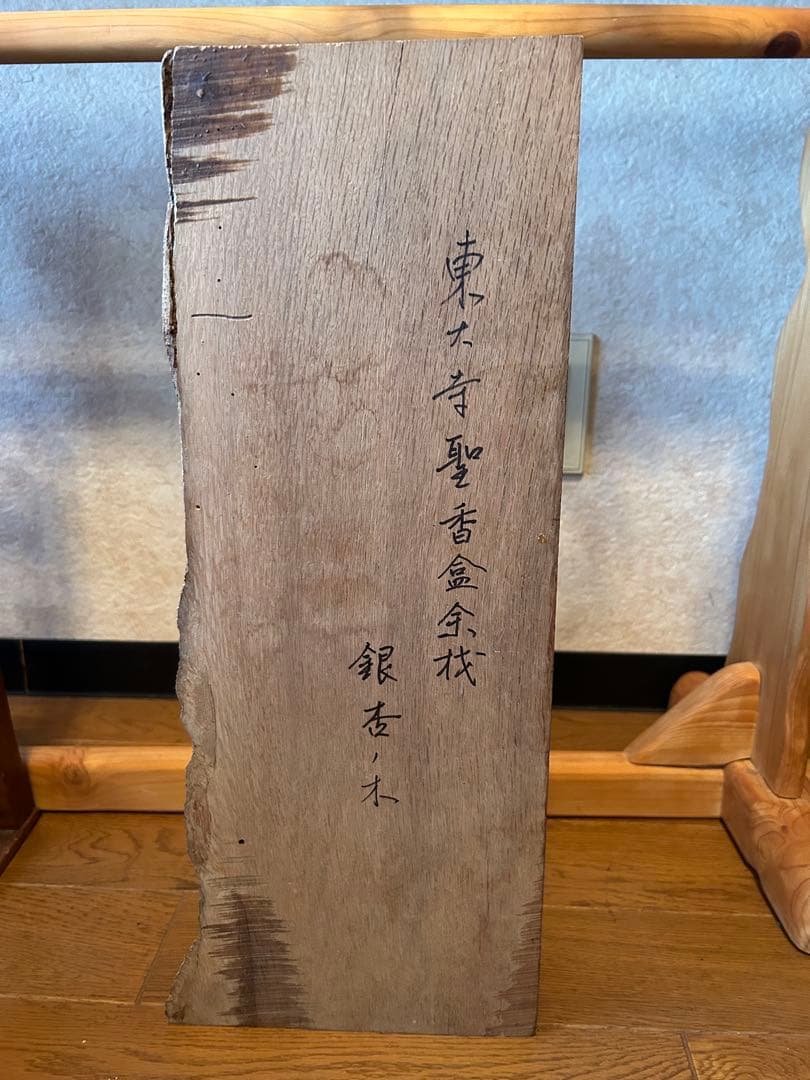 東大寺聖香盒余栈
銀杏ノ木